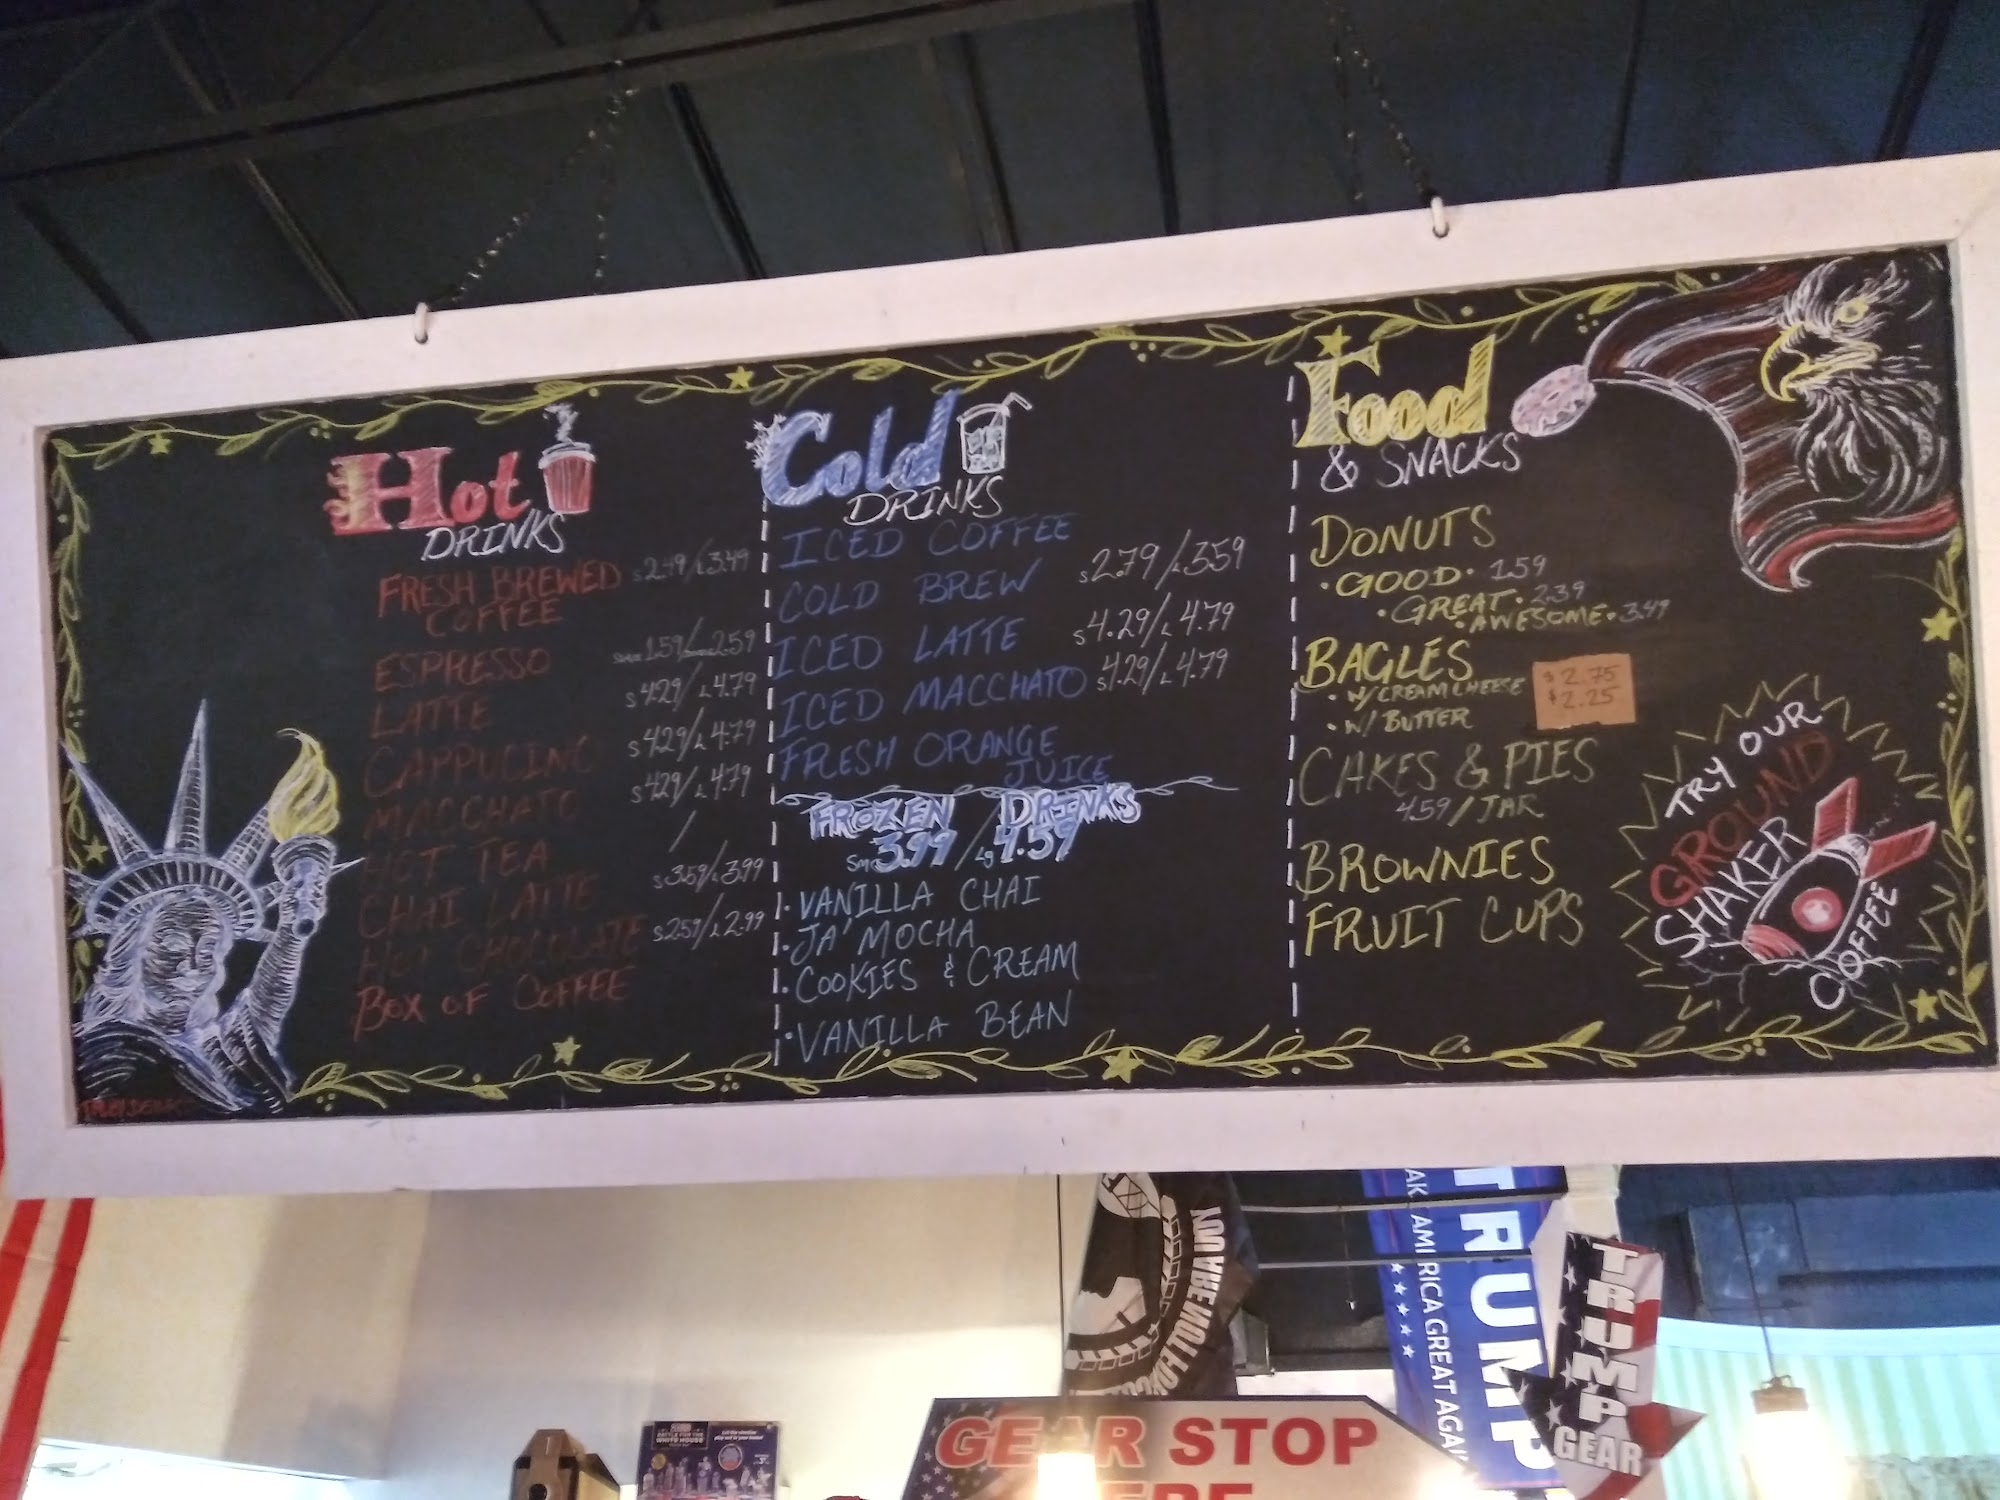 Hot
DRINKS
FRESH BREWED S 2.49/L 3.49
COFFEE
ESPRESSO 1.59/ 2.59
LATTE S 4.29/L 4.79
CAPPUCINO S 4.29/L 4.79
MACCHATO S 4.29/L 4.79
HOT TEA /
CHAI LATTE S 3.59/L 3.99
HOT CHOCOLATE S 2.59/L 2.99
BOX OF COFFEE
Cold
DRINKS
ICED COFFEE
COLD BREW S 2.79/L 3.59
ICED LATTE S 4.29/L 4.79
ICED MACCHATO S 4.29/L 4.79
FRESH ORANGE
JUICE
FROZEN DRINKS
Sm 3.99/Lg 4.59
· VANILLA CHAI
· JA'MOCHA
· COOKIES & CREAM
· VANILLA BEAN
Food
& SNACKS
DONUTS
· GOOD · 1.59
· GREAT · 2.39
· AWESOME · 3.49
BAGLES
· W/ CREAM CHEESE $2.75
· W/ BUTTER $2.25
CAKES & PIES
4.59/JAR
BROWNIES
FRUIT CUPS
TRY OUR
GROUND
SHAKER
COFFEE
TRUMP
MAKE AMERICA GREAT AGAIN
TRUMP
GEAR
GEAR STOP
HERE
BATTLE FOR THE
WHITE HOUSE